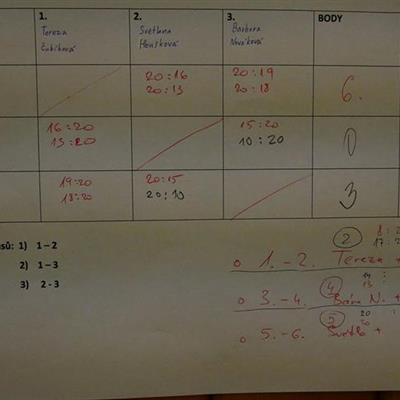 1. 2. 3. BODY
Tereza Svetlana Barbora
Nováková
20:16 20:19 6.
20:13 20:18
16:20 15:20 0
13:20 10:20
19:20 20:15 3
18:20 20:10
sů: 1) 1 – 2
2) 1 – 3
3) 2 - 3
2
17:2
o 1. - 2. Tereza +
4
o 3. - 4. Bára N. +
5 20
o 5. - 6. +